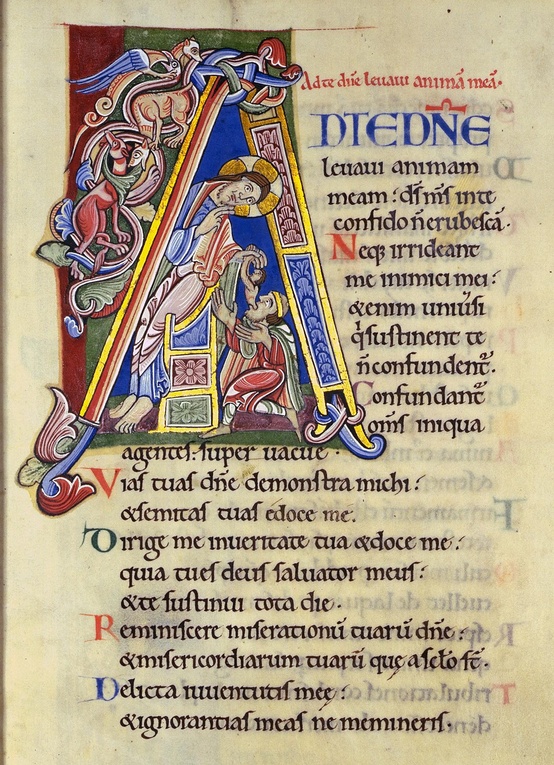 Ad te dñe levavi animã meã·
AD TE DÑE
levavi animam
meam: ds̄ ms̄ in te
confido ñ erubescã·
Neq; irrideant
me inimici mei:
&enim univs̄i
q̇ sustinent te
ñ confundent̄·
Confundant̄
oms̄ iniqua
agentes: super vacue·
Vias tuas dñe demonstra michi:
& semitas tuas edoce me·
Dirige me in veritate tua & doce me:
quia tu es deus salvator meus:
& te sustinui tota die·
Reminiscere miserationū tuarū dñe:
& misericordiarum tuarū quę a sc̄lo st̄·
Delicta iuventutis meę:
& ignorantias meas ne memineris·